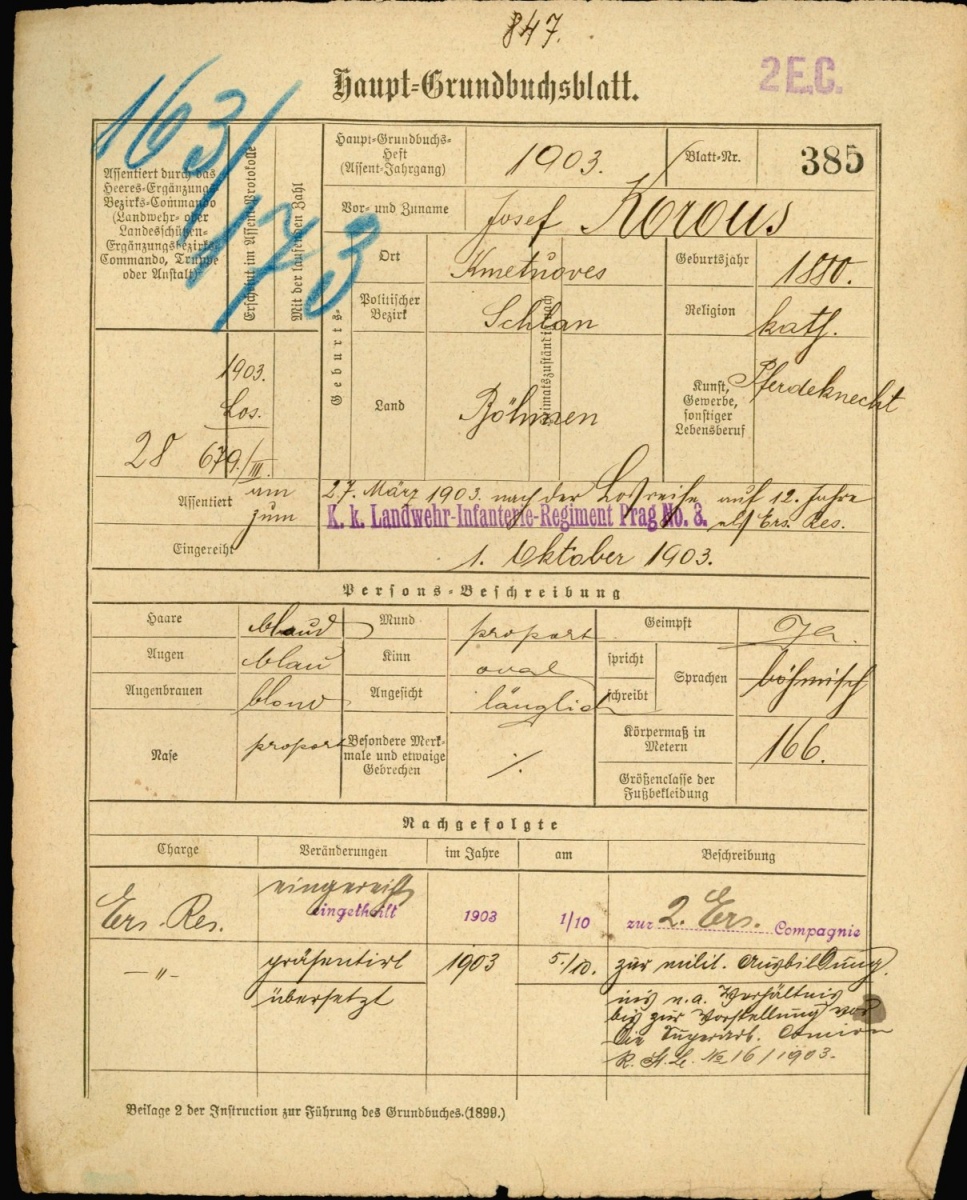 847.
Haupt-Grundbuchsblatt.
2 E.C.
163/173
Assentiert durch das
Heeres-Ergänzungs-
Bezirks-Commando
(Landwehr- oder
Landesschützen-
Ergänzungsbezirks-
Commando, Truppe
oder Anstalt)
Erscheint im Assent-Protokolle
Mit der laufenden Zahl
Haupt-Grundbuchs-
Heft
(Assent-Jahrgang)
1903.
Blatt-Nr.
385
Vor- und Zuname
Josef Korous
Geburts-
Ort
Kmetnoves
Politischer
Bezirk
Schlan
Land
Böhmen
Heimatszuständig nach
Geburtsjahr
1880.
Religion
kath.
Kunst,
Gewerbe,
sonstiger
Lebensberuf
Pferdeknecht
1903.
Los.
28 679./III.
Assentiert am
zum
27. März 1903. nach der Losreihe auf 12. Jahre
K. k. Landwehr-Infanterie-Regiment Prag No. 8. als Ers. Res.
Eingereiht
1. Oktober 1903.
Persons-Beschreibung
Haare
blond
Mund
proport
Geimpft
Ja.
Augen
blau
Kinn
oval
spricht
schreibt
Sprachen
böhmisch
Augenbrauen
blond
Angesicht
länglich
Nase
proport
Besondere Merk-
male und etwaige
Gebrechen
./.
Körpermaß in
Metern
166.
Größenclasse der
Fußbekleidung
Nachgefolgte
Charge Veränderungen im Jahre am Beschreibung
Ers. Res. eingereiht
eingetheilt 1903 1/10 zur 2. Ers. Compagnie
—"— präsentirt 1903 5./10. zur milit. Ausbildung.
übersetzt ins n. a. Verhältnis
bis zur Vorstellung vor
die Superarb. Comion
R. No 16/1903.
Beilage 2 der Instruction zur Führung des Grundbuches. (1899.)